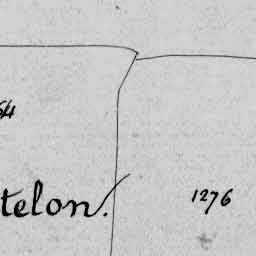 64
telon.
1276